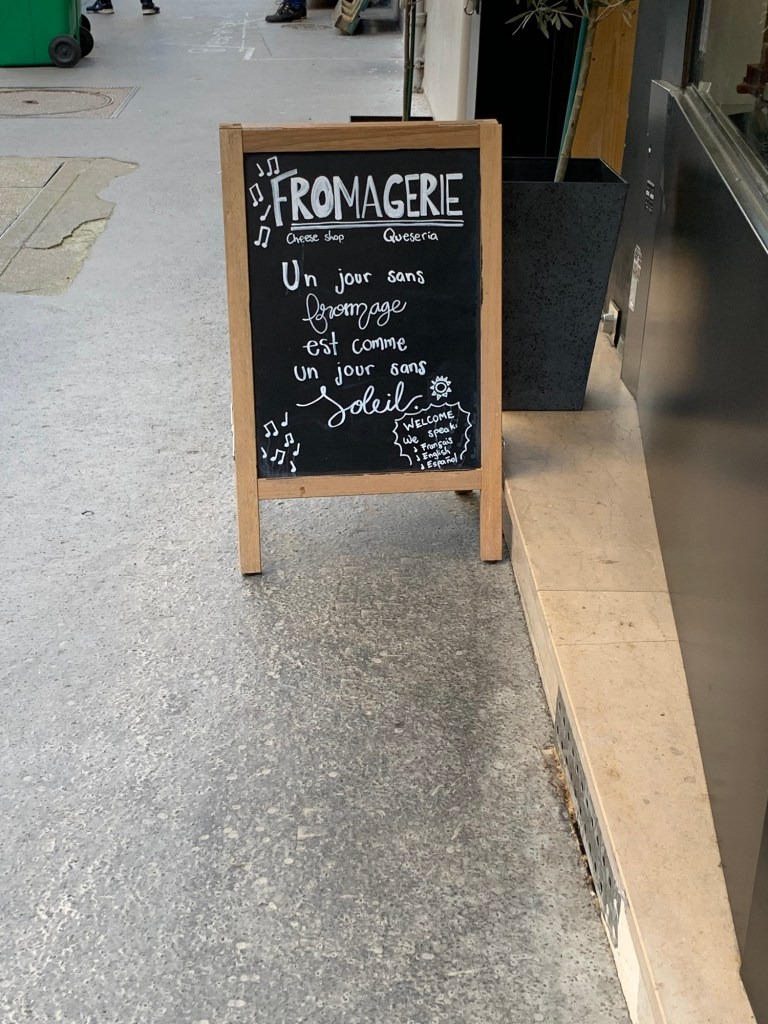 FROMAGERIE
Cheese shop Queseria
Un jour sans
fromage
est comme
un jour sans
Soleil.
WELCOME
We speak:
Français
English
Español